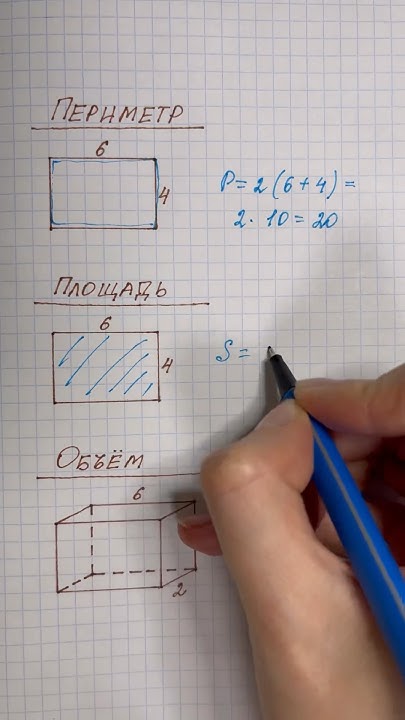 ПЕРИМЕТР
6
4
P = 2 (6 + 4) =
2 · 10 = 20
ПЛОЩАДЬ
6
4
S =
ОБЪЁМ
6
2